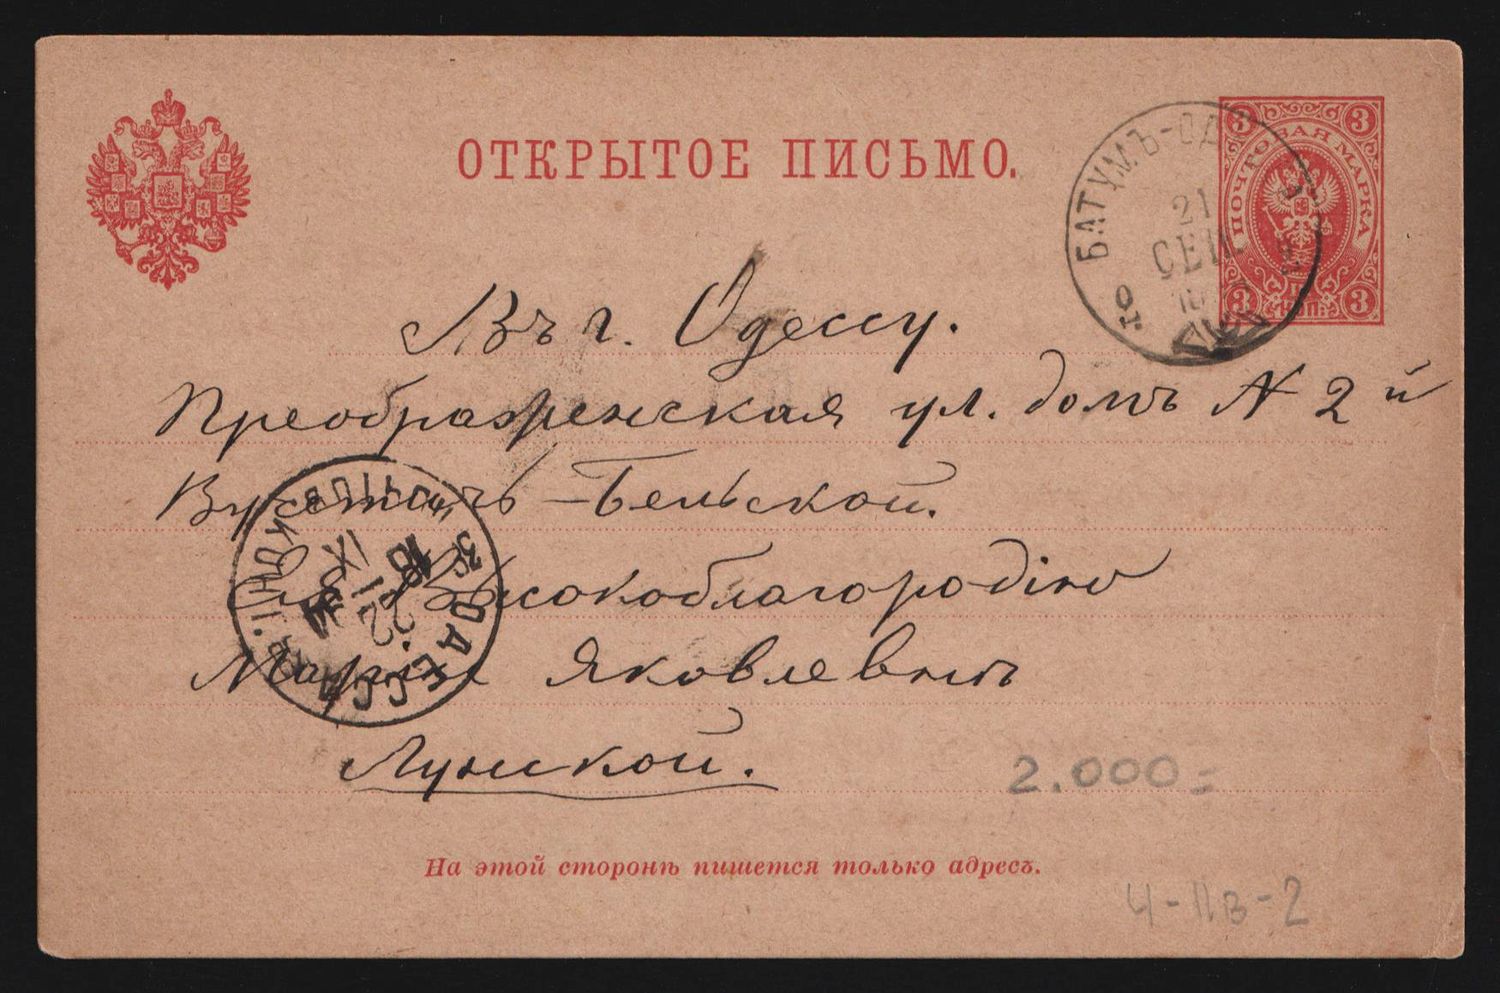 ОТКРЫТОЕ ПИСЬМО.
ПОЧТОВАЯ МАРКА
3 3
3 3
КОП.
БАТУМЪ-ОД
21
СЕН.
Въ г. Одессу.
Преображенская ул. домъ N 2й
Бельской.
Ея Высокоблагородію
Маріи Яковлевнѣ
Лунской.
ОДЕССА
22
IX
10
2.000=
На этой сторонѣ пишется только адресъ.
4-11в-2